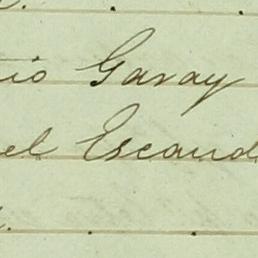 tio Garay
el Escand